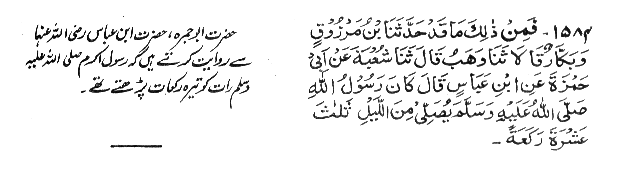 ۱۵۸۴- فَمِنْ ذٰلِكَ مَا قَدْ حَدَّثَنَا بْنُ مَرْزُوْقٍ
وَبَكَّارٌ قَالَا ثَنَا وَهْبٌ قَالَ ثَنَا شُعْبَةُ عَنْ اَبِیْ
حَمْزَةَ عَنِ ابْنِ عَبَّاسٍ قَالَ كَانَ رَسُوْلُ اللّٰهِ
صَلَّى اللّٰهُ عَلَيْهِ وَسَلَّمَ يُصَلِّیْ مِنَ اللَّيْلِ ثَلٰثَ
عَشْرَةَ رَكْعَةً -
حضرت ابو جمرہ ، حضرت ابن عباس رضی اللہ عنہما
سے روایت کرتے ہیں کہ رسول اکرم صلی اللہ علیہ
وسلم رات کو تیرہ رکعات پڑھتے تھے ۔